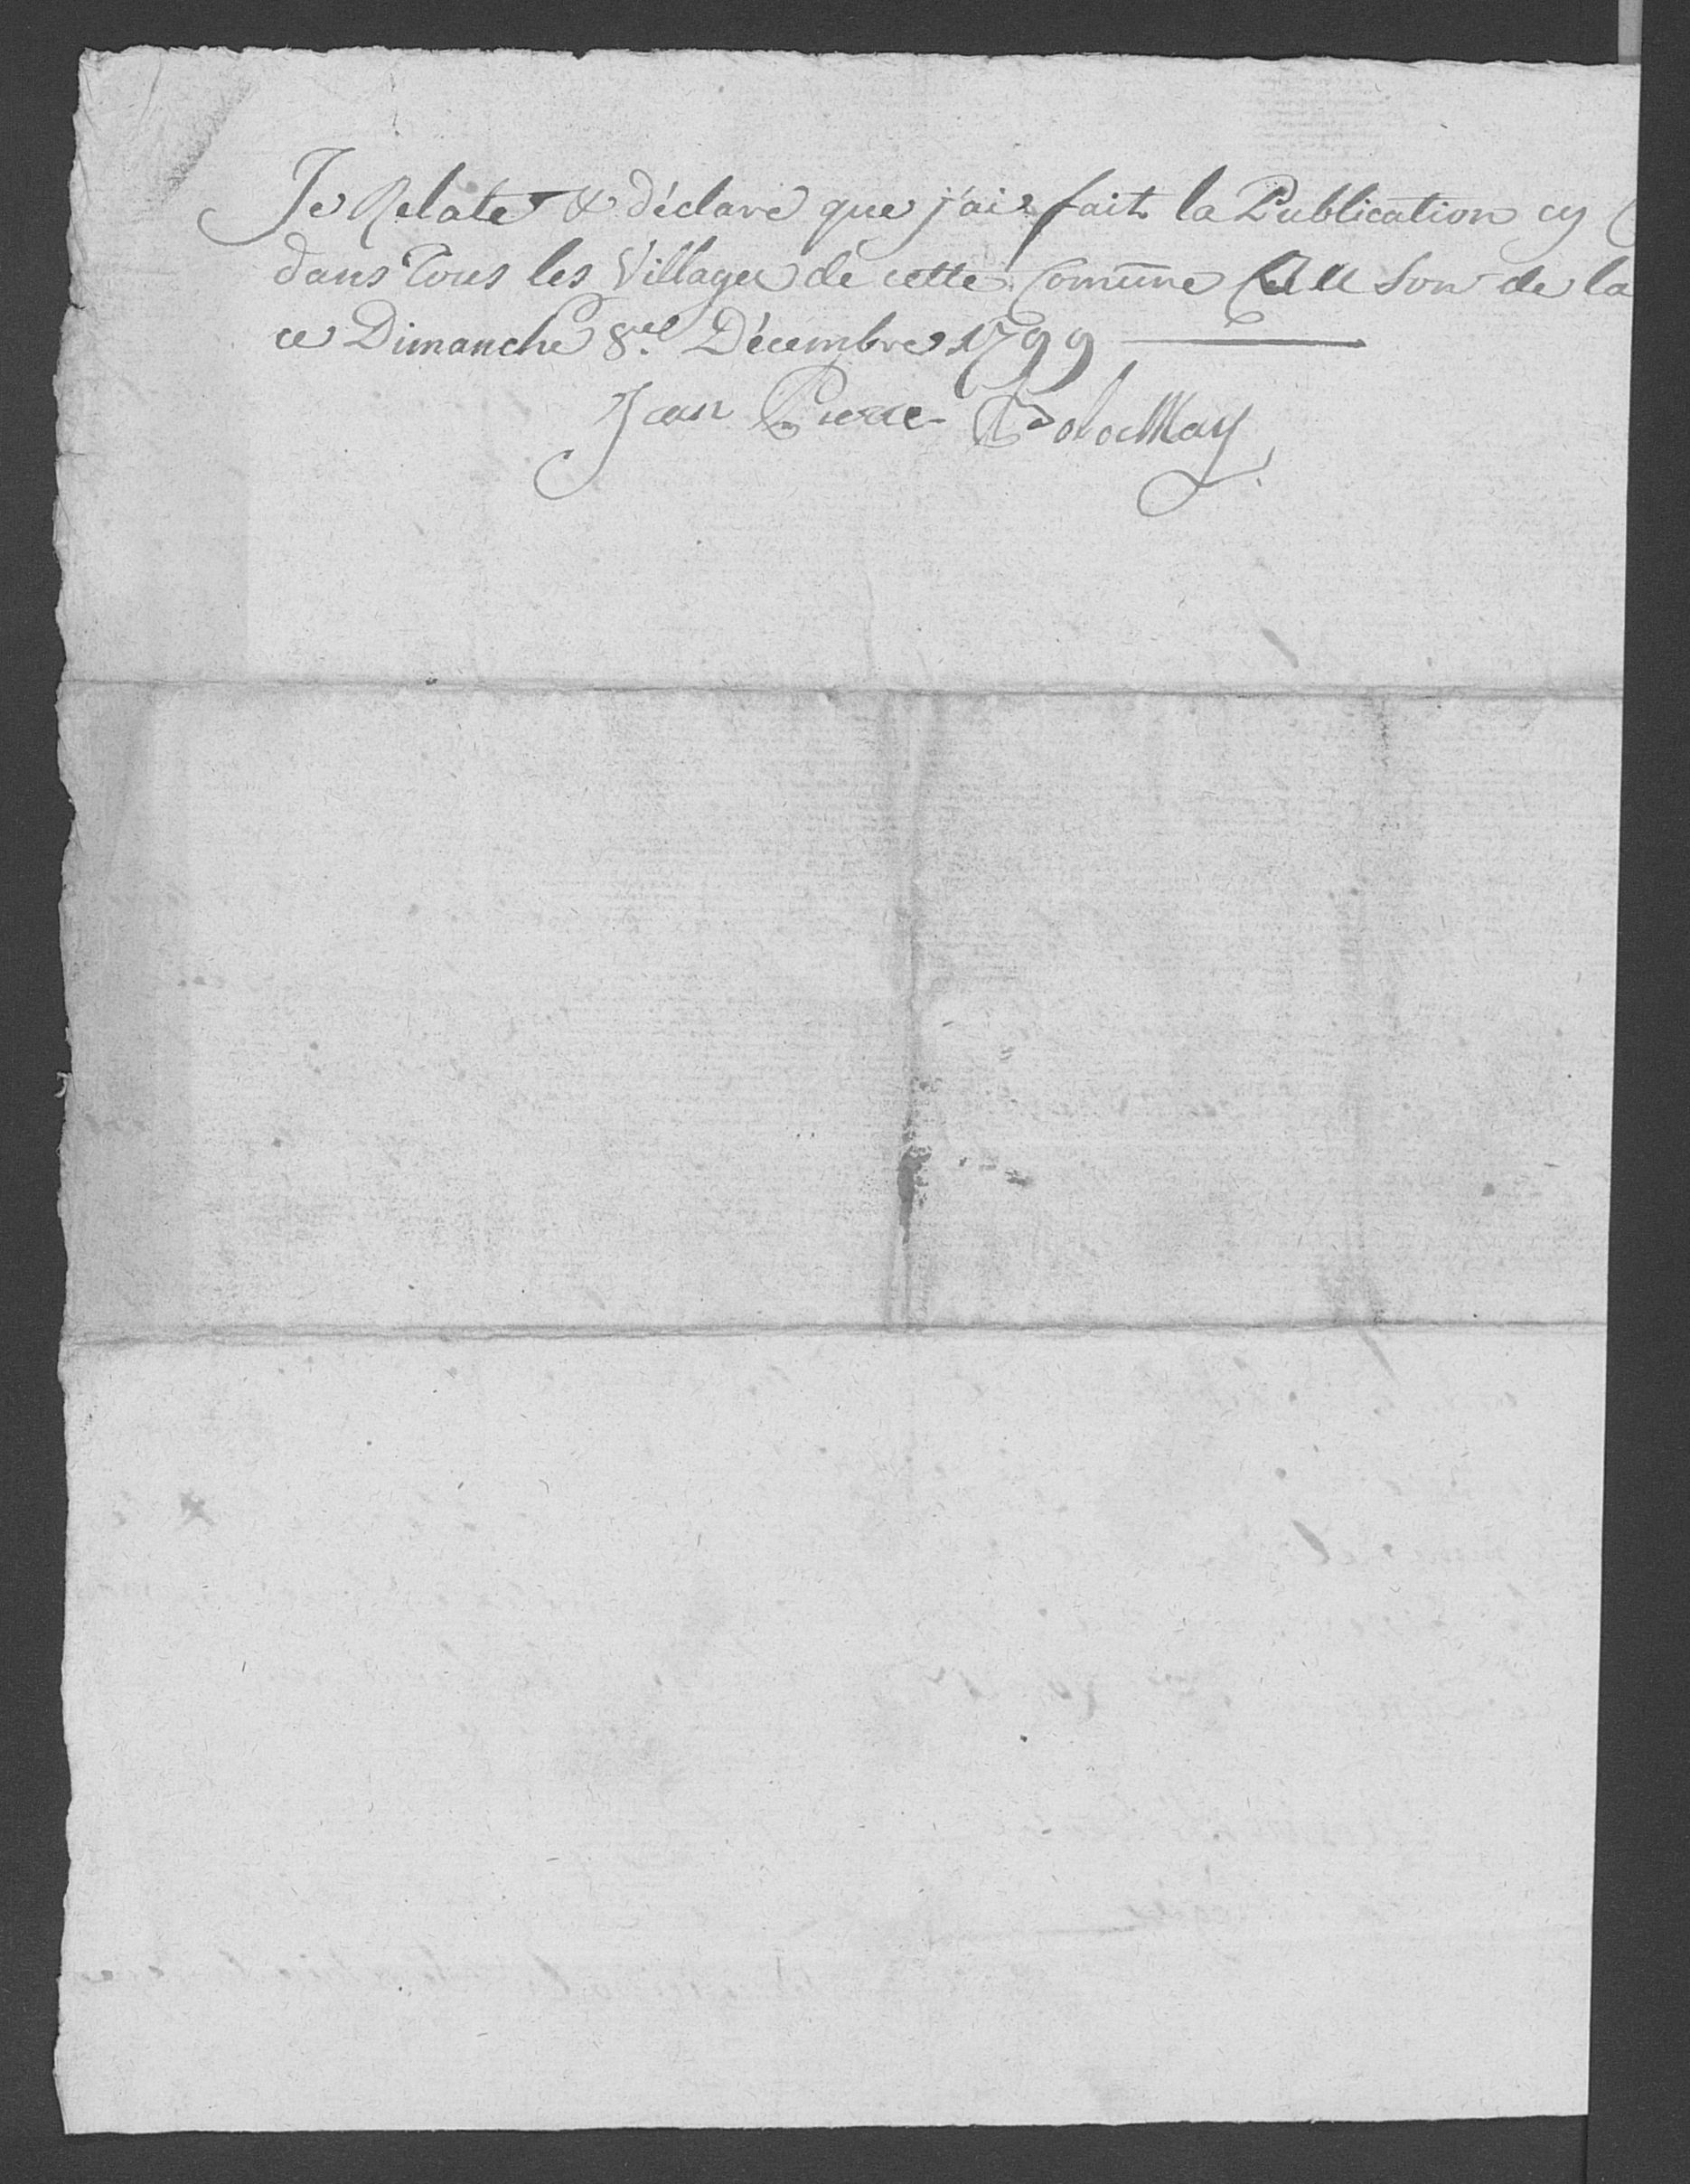 Je Relate & déclare que j'ai fait la Publication cy
dans Tous les Villages de cette Comune Au Son de la
ce Dimanche 8.e Décembre 1799
Jean Pierre